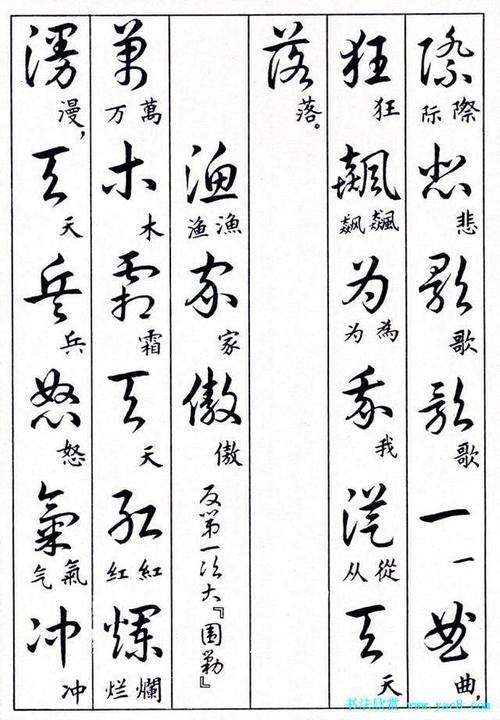 際悲歌歌一曲
际 際 悲 歌 歌 一 曲,
狂飙为我從天
狂 飙 飆 为 為 我 从 從 天
落
落。
渔家傲 反第一次大『围勦』
渔 漁 家 傲
万木霜天红爛
万 萬 木 霜 天 红 紅 烂 爛
漫天兵怒氣冲
漫, 天 兵 怒 气 氣 冲
书法欣赏 www.yac8.com